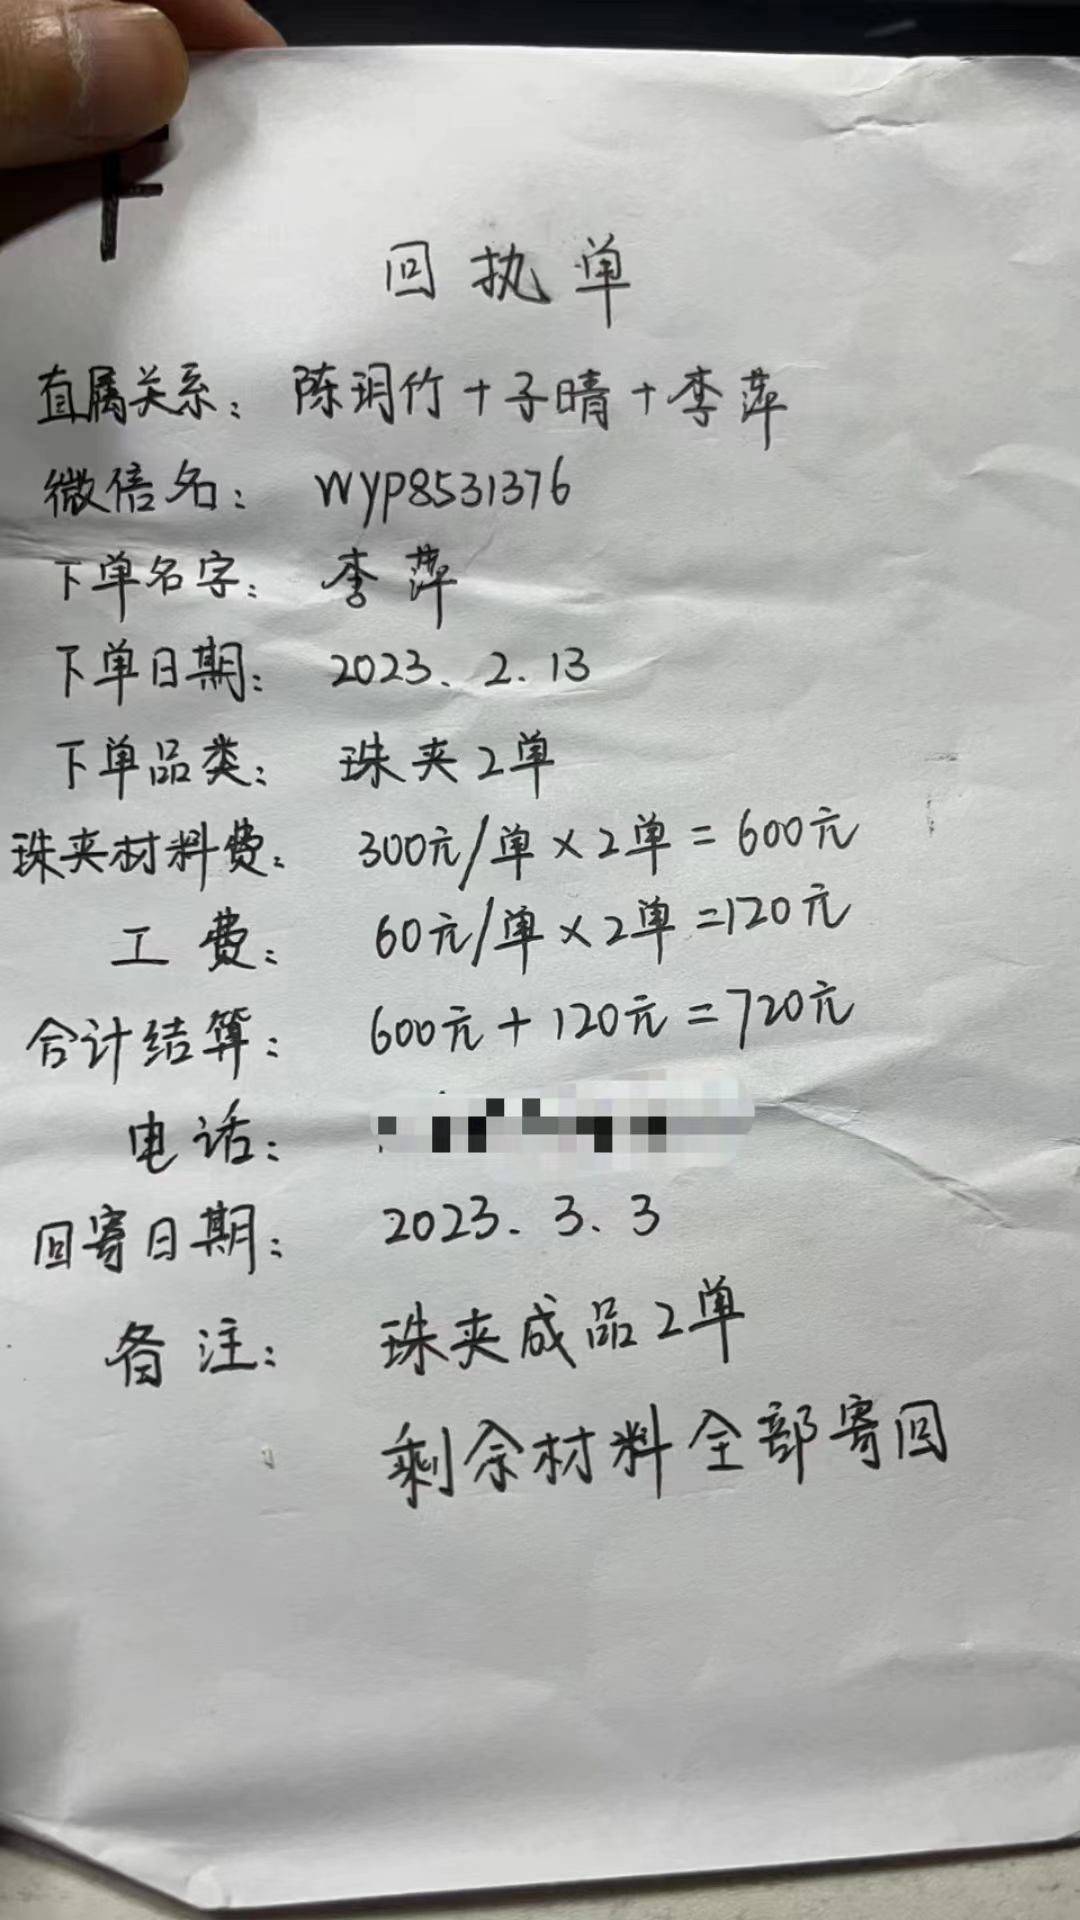 回执单
直属关系：陈玥竹+子晴+李萍
微信名：wyp8531376
下单名字：李萍
下单日期：2023.2.13
下单品类：珠夹2单
珠夹材料费：300元/单×2单=600元
工费：60元/单×2单=120元
合计结算：600元+120元=720元
电话：
回寄日期：2023.3.3
备注：珠夹成品2单
剩余材料全部寄回